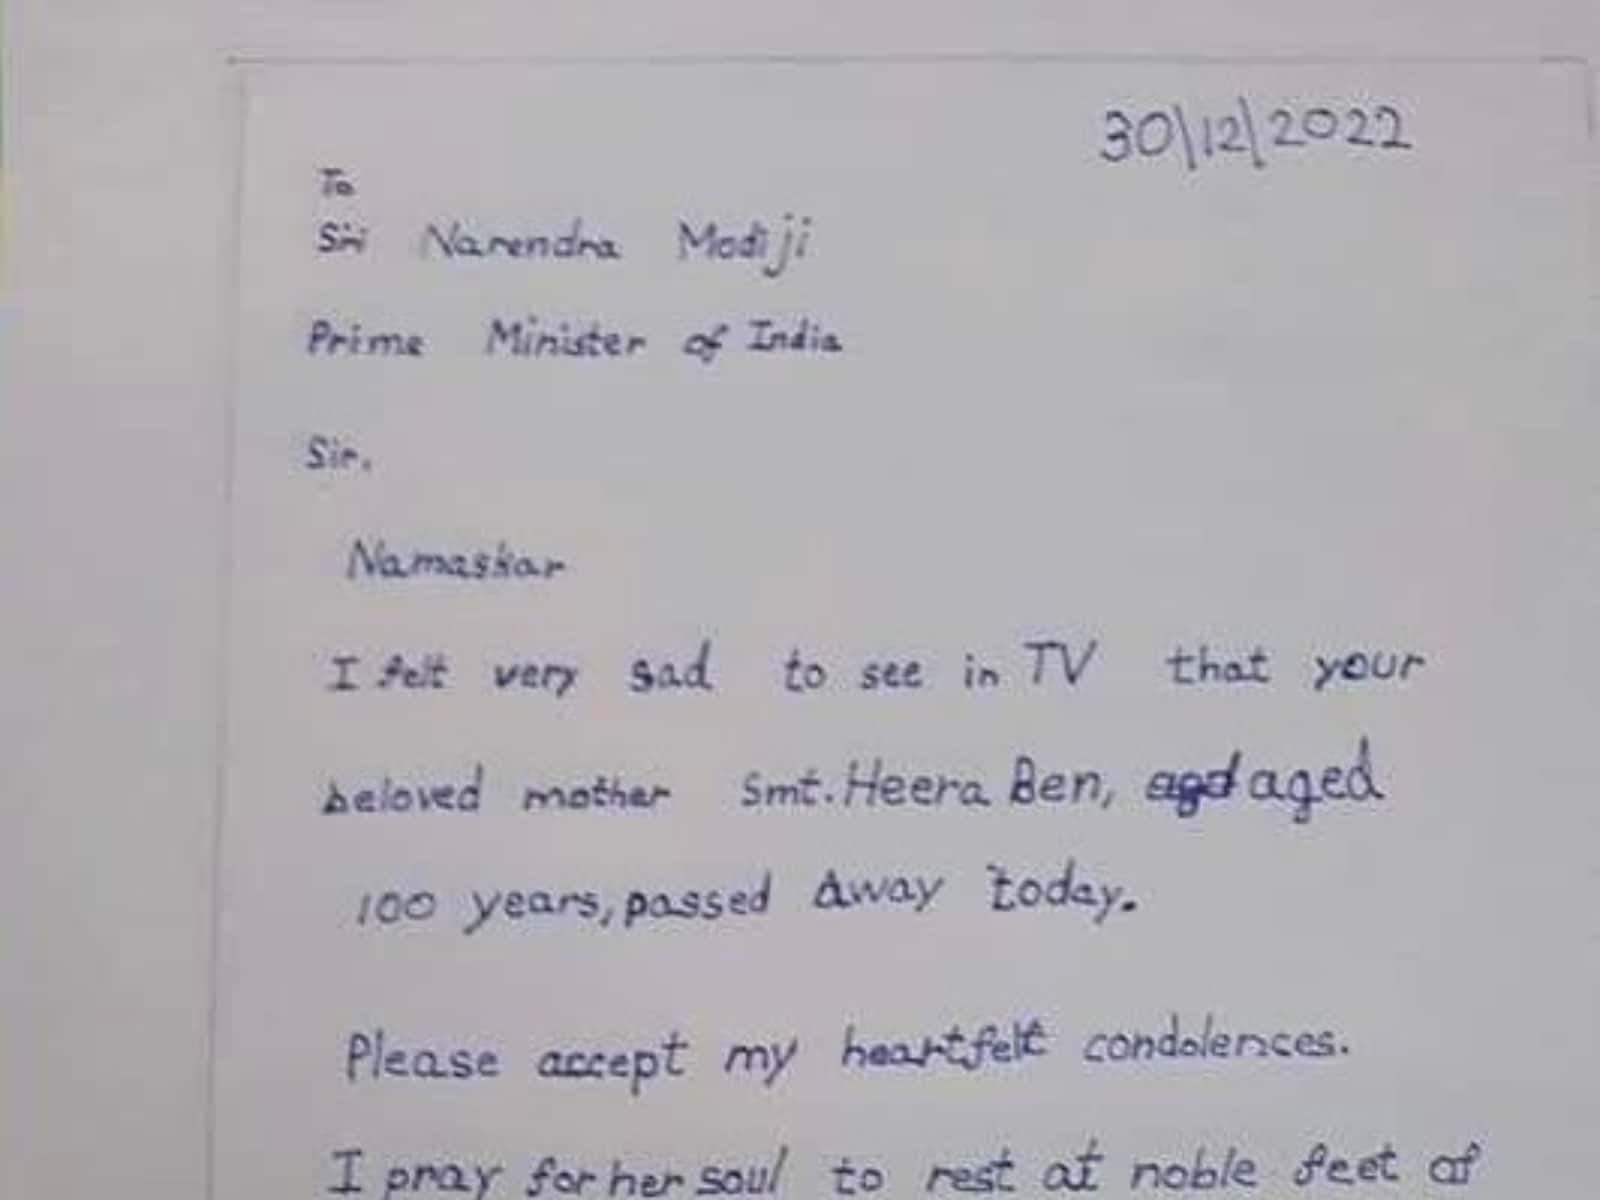 30\12\2022
To
Sri Narendra Modiji
Prime Minister of India
Sir.
Namaskar
I felt very sad to see in TV that your
beloved mother Smt. Heera Ben, aged
100 years, passed Away today.
Please accept my heartfelt condolences.
I pray for her soul to rest at noble feet of